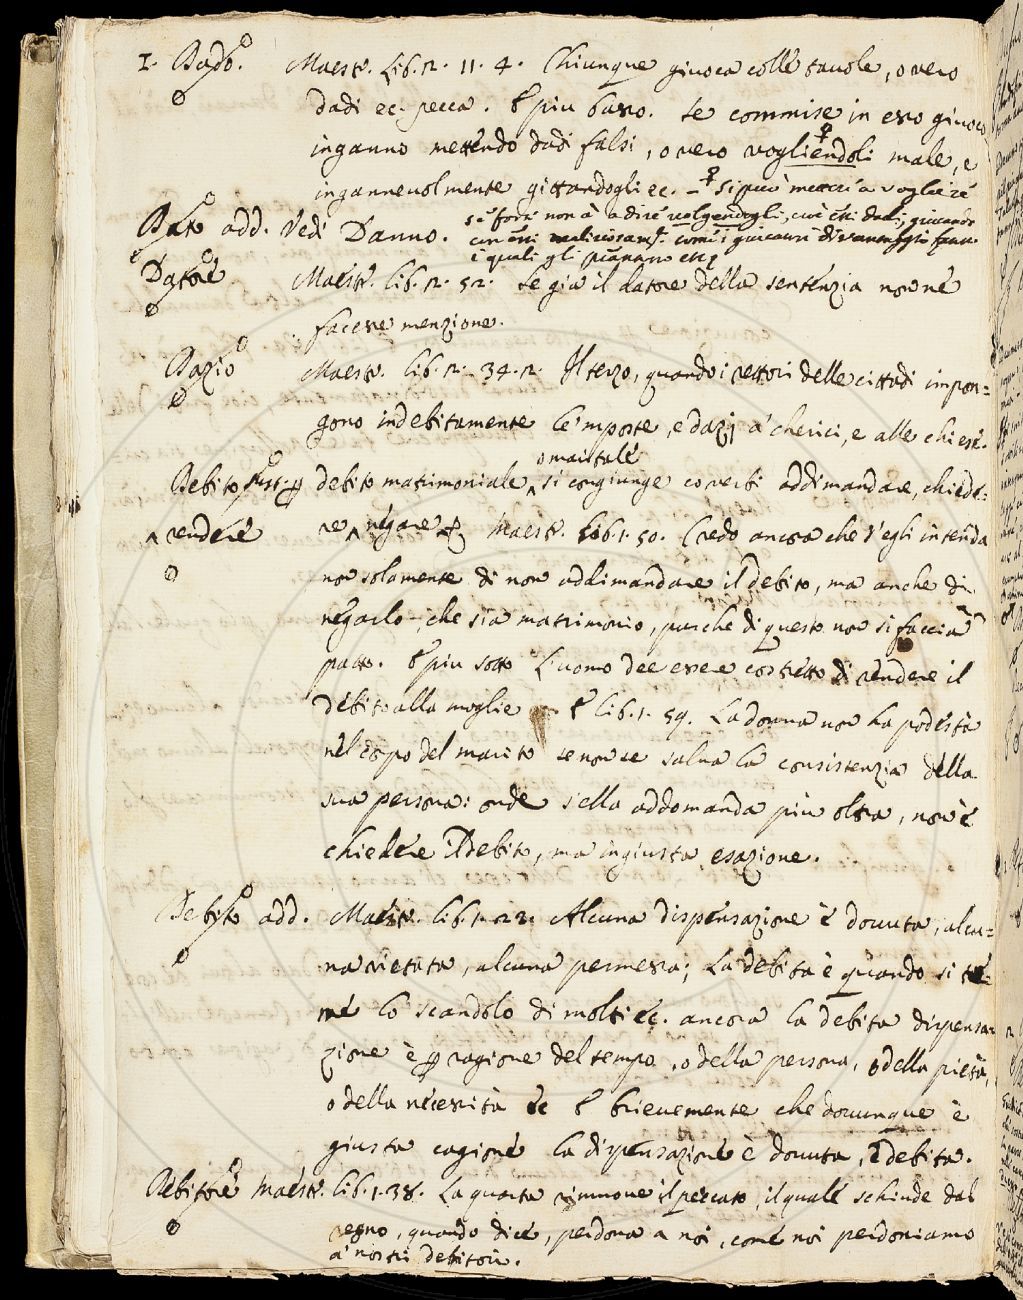 I. Dado. Maestr. lib. 2. 11. 4. Chiunque giuoca colle tavole, overo
dadi ec. pecca. E piu basso. Se commise in esso giuoco
inganno mettendo dadi falsi, overo vogliendoli male, e
ingannevolmente gittandogli ec. – si può metter a vogliere
se forse non à a dire volgendogli, cioè essi dadi, giocando
Dato add. Vedi Danno. con essi maliziosam.e come i giucatori di vantaggio fanno
i quali gli
Datore Maestr. lib. 2. 52. Se già il datore della sentenzia non ne
facesse menzione.
Dazio Maestr. lib. 2. 34. 2. Il terzo, quando i rettori delle cittadi impon=
gono indebitamente le 'mposte, e dazj a' cherici, e alle chiese.
o maritale
Debito sust. debito matrimoniale si congiunge co verbi addimandare, chiede=
rendere re negare Maestr. lib. 1. 50. Credo ancora che s'egli intenda
non solamente di non addimandare il debito, ma anche di
negarlo, che sia matrimonio, purche di questo non si faccia
patto. E piu sotto L'uomo dee essere costretto di rendere il
debito alla moglie E lib. 1. 59. La donna non ha podestà
nel corpo del marito se non se salva la consistenzia della
sua persona: onde s'ella addomanda più oltra, non è
chiedere il debito, ma ingiusta esazione.
Debito add. Maestr. lib. 1. 22. Alcuna dispensazione è dovuta, alcu=
na vietata, alcuna permessa; La debita è quando si te=
me lo scandolo di molti ec. ancora la debita dispensa=
zione è p ragione del tempo, o della persona, o della pietà,
o della necessità ec E brievemente che dovunque è
giusta cagione la dispensazione è dovuta, e debita.
Debitore Maestr. lib. 1. 38. La quarta rimuove il peccato, il quale schiude dal
regno, quando dice, perdona a noi, come noi perdoniamo
a' nostri debitori.